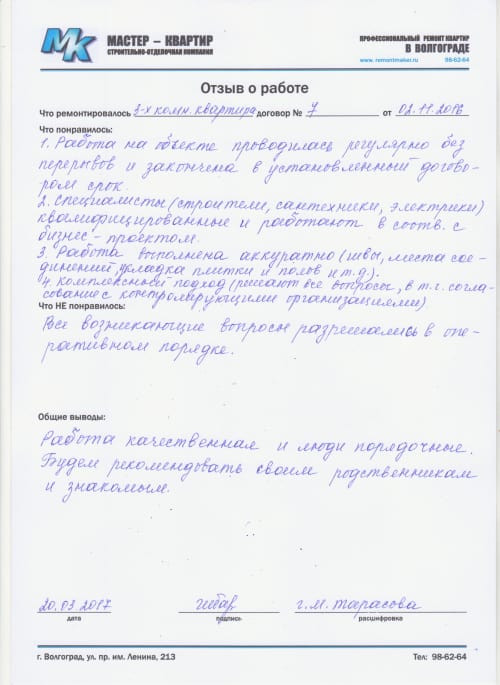 МК
МАСТЕР – КВАРТИР
СТРОИТЕЛЬНО-ОТДЕЛОЧНАЯ КОМПАНИЯ
ПРОФЕССИОНАЛЬНЫЙ РЕМОНТ КВАРТИР
В ВОЛГОГРАДЕ
www.remontmaker.ru 98-62-64
Отзыв о работе
Что ремонтировалось 3-х комн. квартира договор № 7 от 02.11.2016
Что понравилось:
1. Работа на объекте проводилась регулярно без
перерывов и закончена в установленный догово-
ром срок.
2. Специалисты (строители, сантехники, электрики)
квалифицированные и работают в соотв. с
бизнес-проектом.
3. Работа выполнена аккуратно (швы, места сое-
динений, укладка плитки и полов и т.д.).
4. Комплексный подход (решают все вопросы, в т.ч. согла-
сование с контролирующими организациями)
Что НЕ понравилось:
Все возникающие вопросы разрешались в опе-
ративном порядке.
Общие выводы:
Работа качественная и люди порядочные.
Будем рекомендовать своим родственникам
и знакомым.
20.03.2017 Г.М. Тарасова
дата подпись расшифровка
г. Волгоград, ул. пр. им. Ленина, 213 Тел: 98-62-64